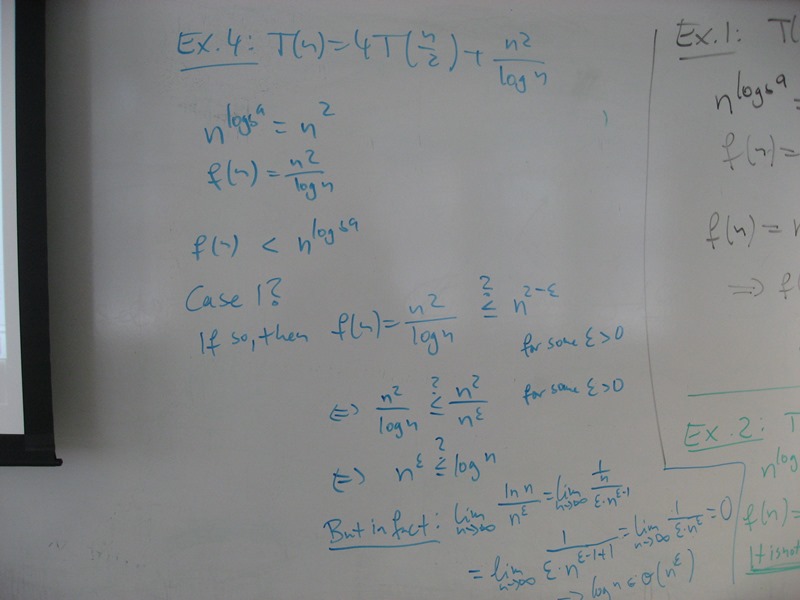 Ex. 4: T(n) = 4T(n/2) + n²/log n
n^(log_b a) = n²
f(n) = n²/log n
f(n) < n^(log_b a)
Case 1?
If so, then f(n) = n²/log n ≤? n^(2-ε)
for some ε > 0
⇔ n²/log n ≤? n²/n^ε for some ε > 0
⇔ n^ε ≤? log n
But in fact: lim n→∞ ln n/n^ε = lim n→∞ (1/n)/(ε·n^(ε-1))
= lim n→∞ 1/(ε·n^(ε-1+1)) = lim n→∞ 1/(ε·n^ε) = 0
⇒ log n ∈ o(n^ε)
Ex. 1: T(
n^(log_b a) =
f(n) =
f(n) = n
⇒ f(
Ex. 2: T
n^log
f(n) =
It is not